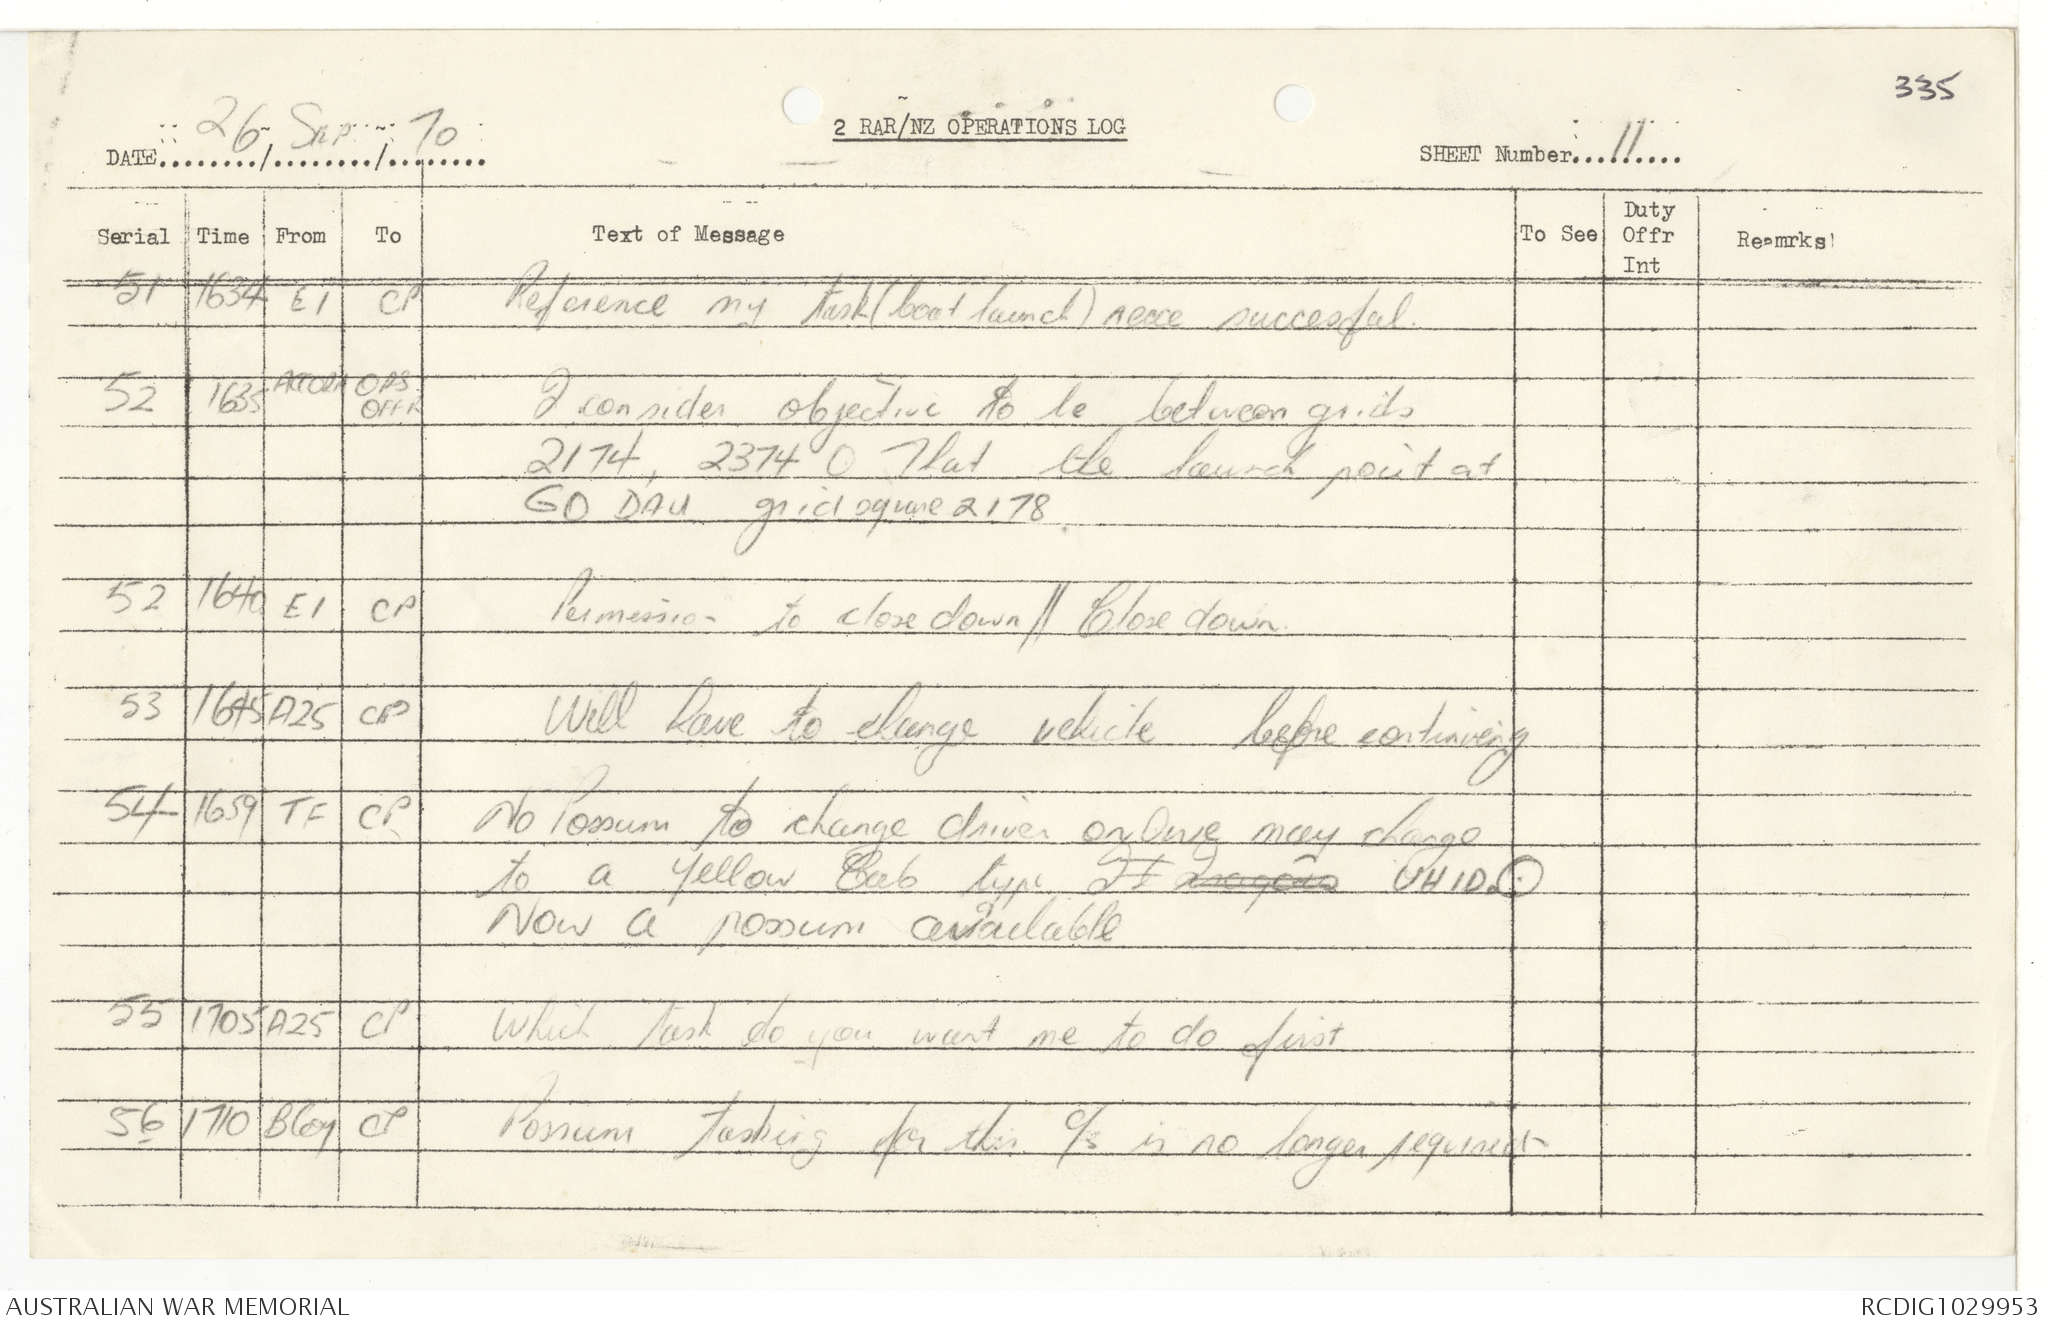 335
26 Sep 70
2 RAR/NZ OPERATIONS LOG
DATE......../......../........
SHEET Number...11.....
Serial Time From To Text of Message To See Duty Offr Int Reamrks
51 1634 E1 CP Reference my task (boat launch) recce succesful.
52 1635 OPS OFFR I consider objective to be between grids
2174, 2374 O That the launch point at
GO DAU grid square 2178.
52 1640 E1 CP Permission to close down // Close down.
53 1645 A25 CP Will have to change vehicle before continuing
54 1659 TF CP No Possum to change driver may change
to a Yellow Cab type UH1D.
Now a possum available
55 1705 A25 CP Which task do you want me to do first
56 1710 BCoy CP Possum tasking for this c/s is no longer required
AUSTRALIAN WAR MEMORIAL
RCDIG1029953